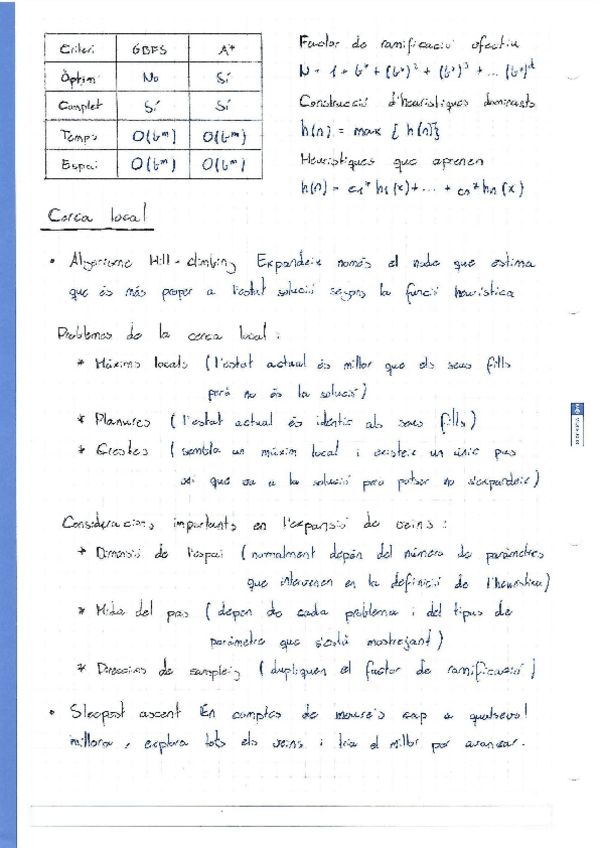 Criteri GBFS A*
Òptim No Sí
Complet Sí Sí
Temps O(b^m) O(b^m)
Espai O(b^m) O(b^m)
Factor de ramificació efectiu
N = 1 + b* + (b*)² + (b*)³ + ... (b*)^d
Construcció d'heurístiques dominants
h(n) = max { h(n)}
Heurístiques que aprenen
h(n) = c1* h1(x) + ... + cn* hn(x)
Cerca local
• Algorisme Hill-climbing Expandeix només el node que estima
que és més proper a l'estat solució segons la funció heurística
Problemes de la cerca local:
* Màxims locals (l'estat actual és millor que els seus fills
però no és la solució)
* Planures (l'estat actual és idèntic als seus fills)
* Crestes (sembla un màxim local i existeix un únic pas
veí que va a la solució però potser no s'expandeix)
Consideracions importants en l'expansió de veïns:
* Dimensió de l'espai (normalment depèn del número de paràmetres
que intervenen en la definició de l'heurística)
* Mida del pas (depèn de cada problema i del tipus de
paràmetre que s'està mostrejant)
* Direccions de sampleig (dupliquen el factor de ramificació)
• Steepest ascent En comptes de moure's cap a qualsevol
millora, explora tots els veïns i tria el millor per avançar.